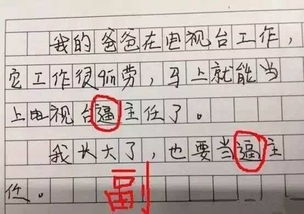 我的爸爸在电视台工作，
它工作很劳，马上就能当
上电视台逼主任了。
我长大了，也要当逼主
任。
副